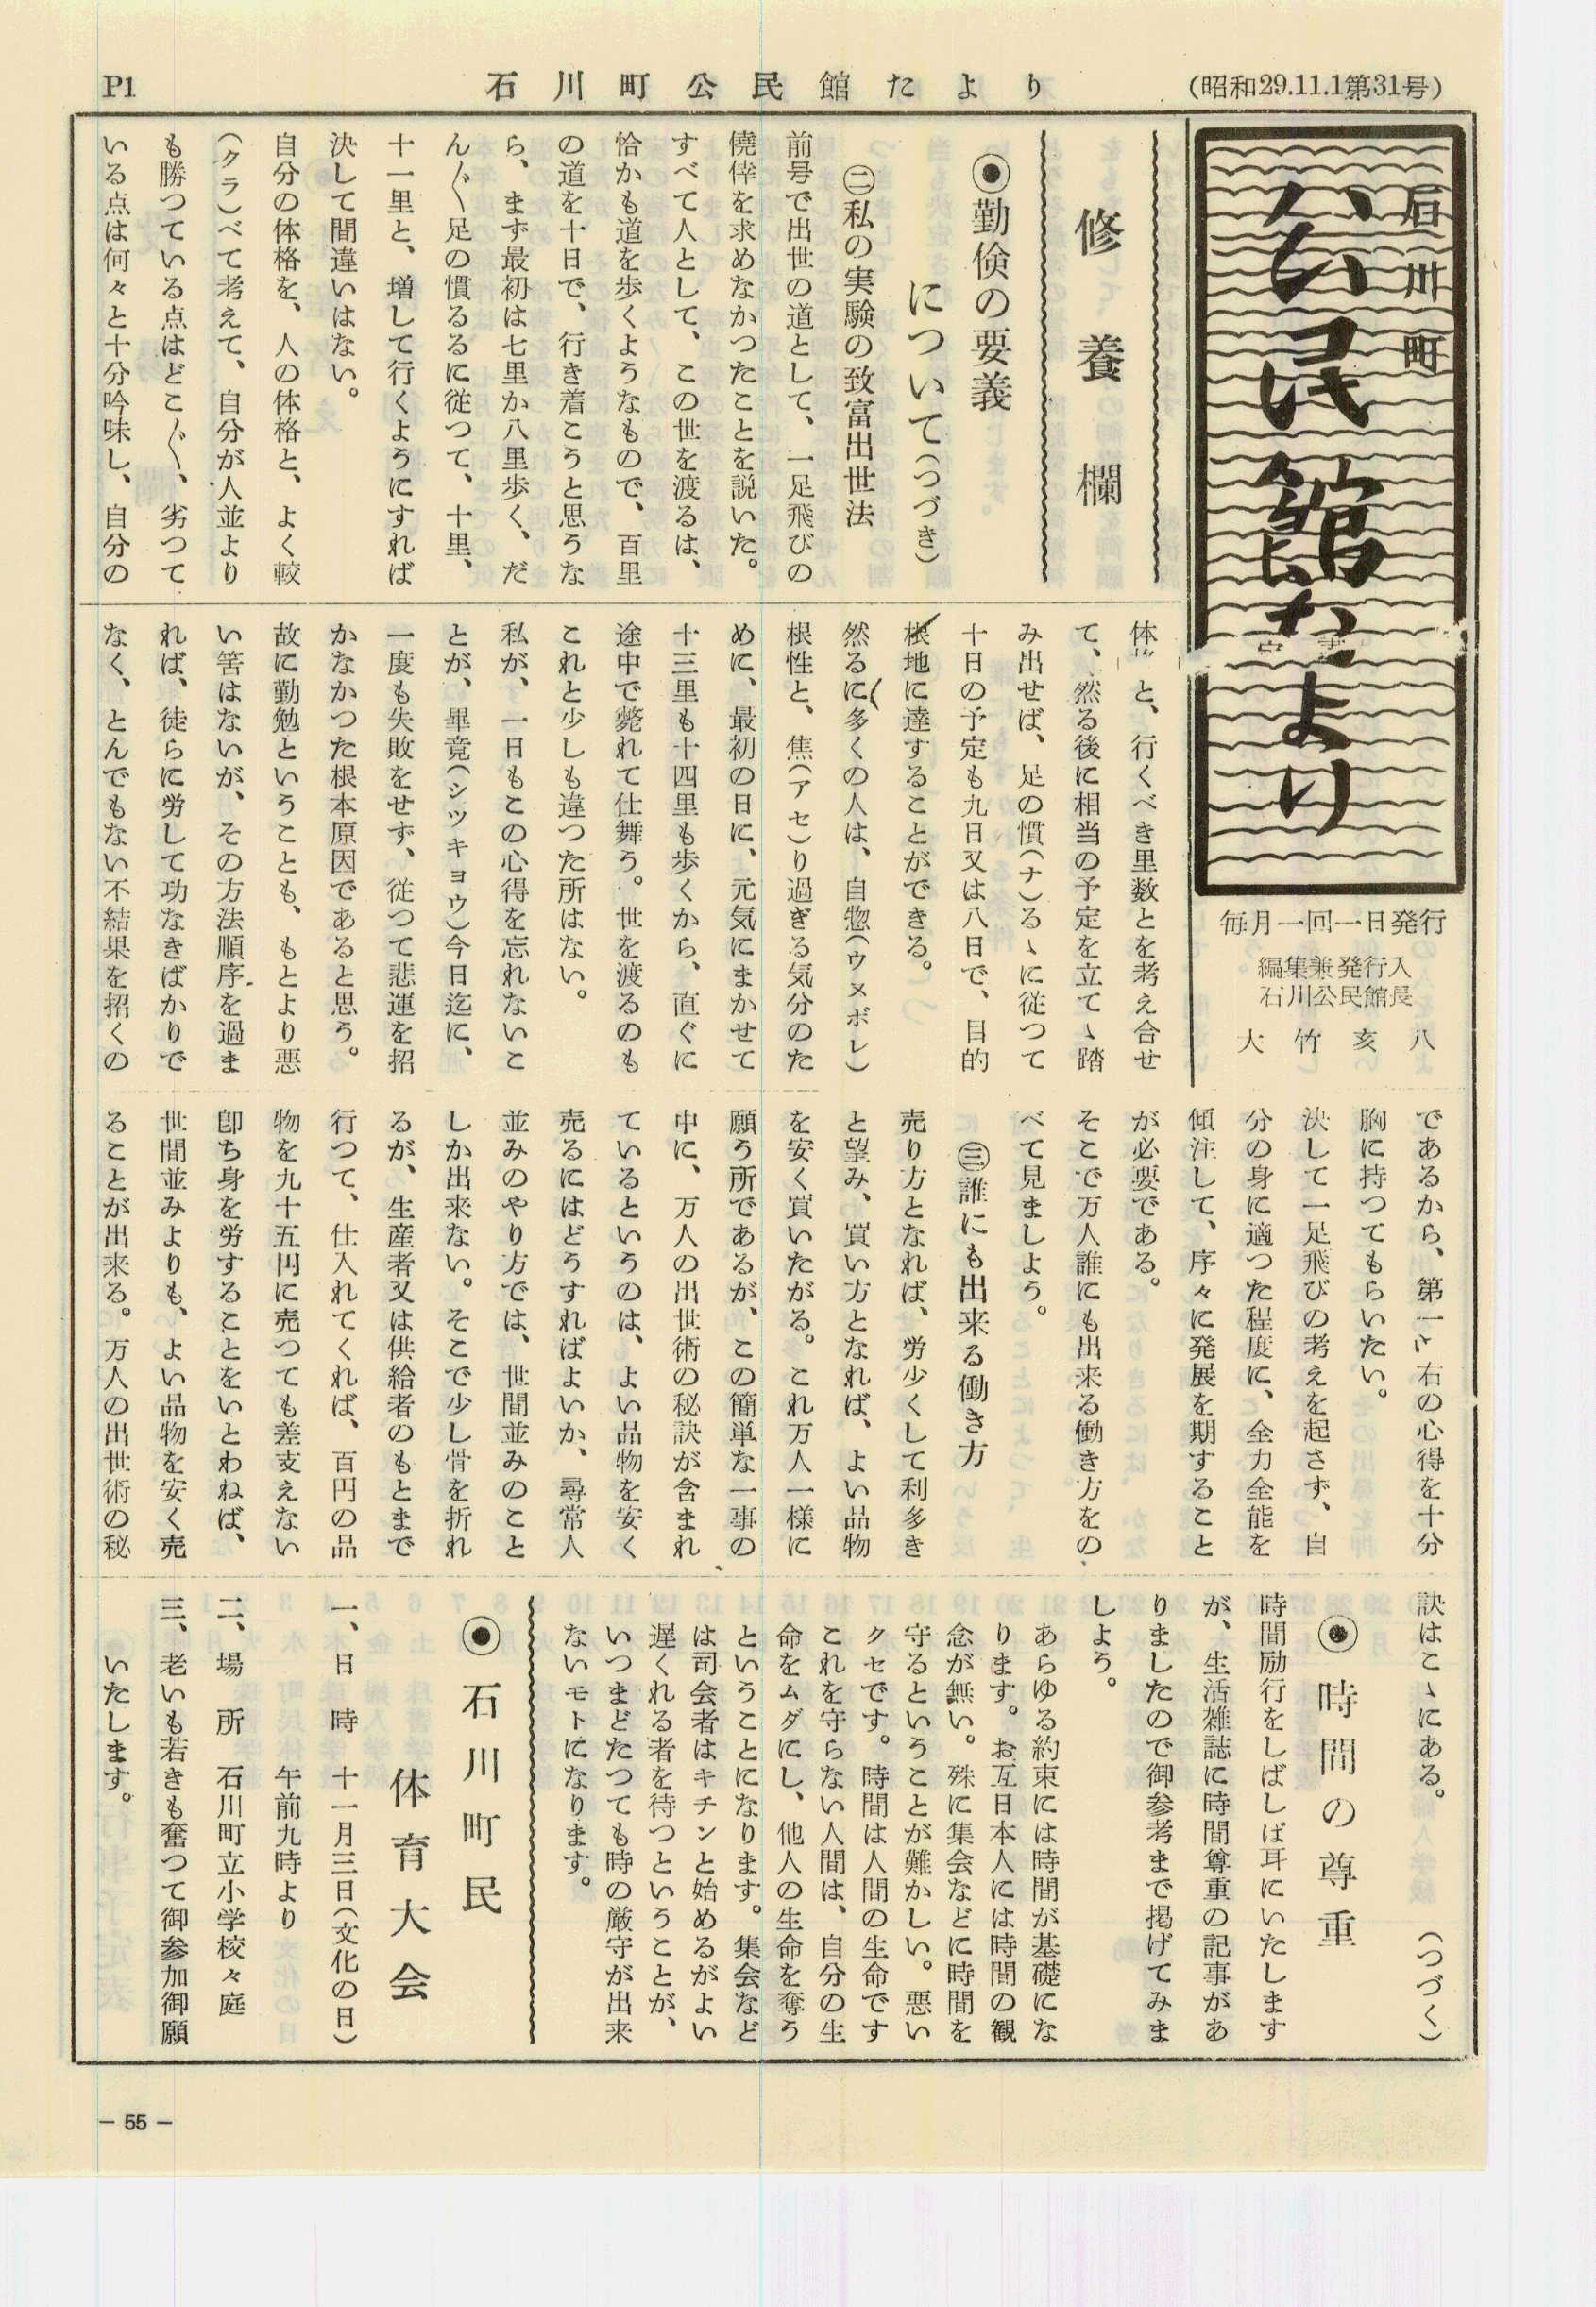 P1
石川町公民館たより
(昭和29.11.1第31号)
石川町
公民館たより
毎月一回一日発行
編集兼発行人
石川公民館長
大竹亥八
修養欄
◉勤倹の要義
について(つづき)
㊁私の実験の致富出世法
前号で出世の道として、一足飛びの
僥倖を求めなかつたことを説いた。
すべて人として、この世を渡るは、
恰かも道を歩くようなもので、百里
の道を十日で、行き着こうと思うな
ら、まず最初は七里か八里歩く、だ
ん〲足の慣るるに従つて、十里、
十一里と、増して行くようにすれば
決して間違いはない。
自分の体格を、人の体格と、よく較
(クラ)べて考えて、自分が人並より
も勝つている点はどこ〲、劣つて
いる点は何々と十分吟味し、自分の
体 と、行くべき里数とを考え合せ
て、然る後に相当の予定を立てゝ踏
み出せば、足の慣(ナ)るゝに従つて
十日の予定も九日又は八日で、目的
根地に達することができる。
然るに多くの人は、自惚(ウヌボレ)
根性と、焦(アセ)り過ぎる気分のた
めに、最初の日に、元気にまかせて
十三里も十四里も歩くから、直ぐに
途中で斃れて仕舞う。世を渡るのも
これと少しも違つた所はない。
私が、一日もこの心得を忘れないこ
とが、畢竟(シツキョウ)今日迄に、
一度も失敗をせず、従つて悲運を招
かなかつた根本原因であると思う。
故に勤勉ということも、もとより悪
い筈はないが、その方法順序を過ま
れば、徒らに労して功なきばかりで
なく、とんでもない不結果を招くの
であるから、第一に右の心得を十分
胸に持つてもらいたい。
決して一足飛びの考えを起さず、自
分の身に適つた程度に、全力全能を
傾注して、序々に発展を期すること
が必要である。
そこで万人誰にも出来る働き方をの
べて見ましよう。
㊂誰にも出来る働き方
売り方となれば、労少くして利多き
と望み、買い方となれば、よい品物
を安く買いたがる。これ万人一様に
願う所であるが、この簡単な一事の
中に、万人の出世術の秘訣が含まれ
ているというのは、よい品物を安く
売るにはどうすればよいか、尋常人
並みのやり方では、世間並みのこと
しか出来ない。そこで少し骨を折れ
るが、生産者又は供給者のもとまで
行つて、仕入れてくれば、百円の品
物を九十五円に売つても差支えない
卽ち身を労することをいとわねば、
世間並みよりも、よい品物を安く売
ることが出来る。万人の出世術の秘
訣はこゝにある。　(つづく)
◉時間の尊重
時間励行をしばしば耳にいたします
が、生活雑誌に時間尊重の記事があ
りましたので御参考まで掲げてみま
しよう。
あらゆる約束には時間が基礎にな
ります。お互日本人には時間の観
念が無い。殊に集会などに時間を
守るということが難かしい。悪い
クセです。時間は人間の生命です
これを守らない人間は、自分の生
命をムダにし、他人の生命を奪う
ということになります。集会など
は司会者はキチンと始めるがよい
遅くれる者を待つということが、
いつまどたつても時の厳守が出来
ないモトになります。
◉石川町民
体育大会
一、日　時　十一月三日(文化の日)
午前九時より
二、場　所　石川町立小学校々庭
三、老いも若きも奮つて御参加御願
いたします。
－55－